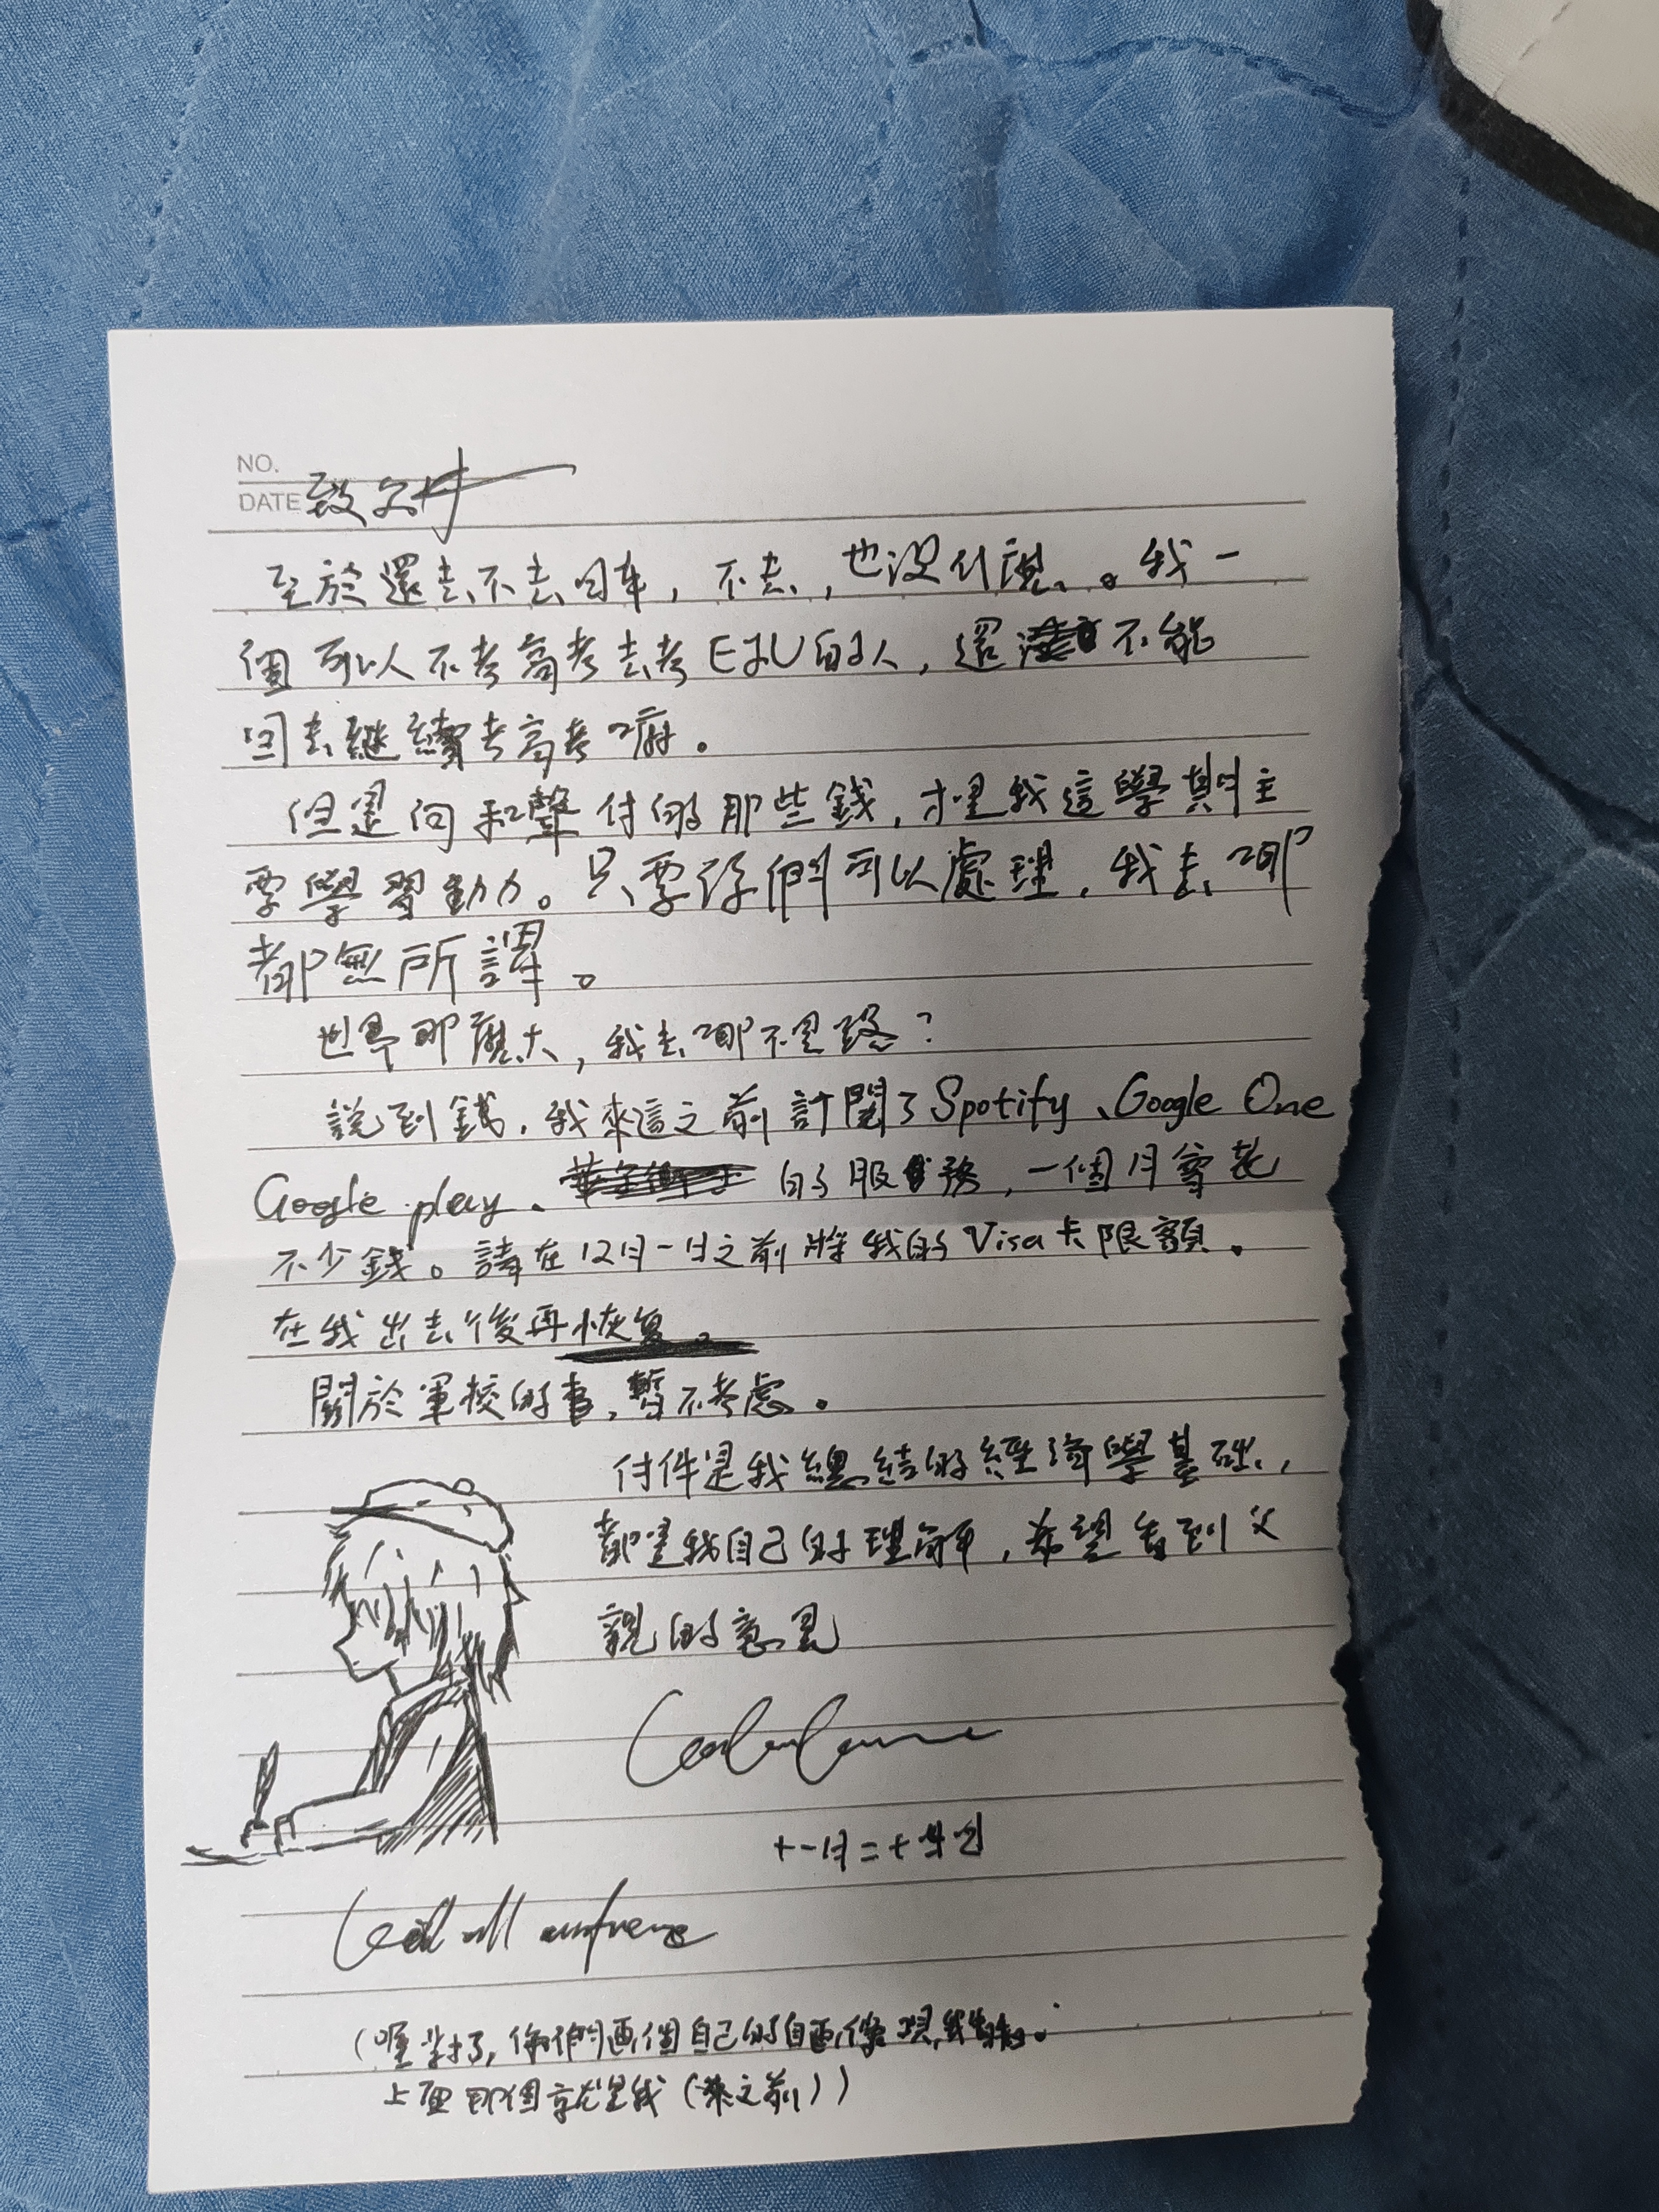 NO.
DATE 致父母
至於還去不去日本，不去，也沒什麼。我一
個可以不考高考去考EJU的人，還 不能
回去繼續考高考嘛。
但是向和聲付的那些錢，才是我這學期主
要學習動力。只要你們可以處理，我去哪
都無所謂。
世界那麼大，我去哪不是路？
說到錢，我來這之前訂閱了Spotify、Google One
Google play、 的服務，一個月會花
不少錢。請在12月一日之前將我的Visa卡限額。
在我出去後再恢复。
關於軍校的事，暫不考慮。
付件是我總結的經濟學基础，
都是我自己的理解，希望看到父
親的意見
十一月二十四日
(喔對了，你們画個自己的自画像
上面那個就是我(來之前))